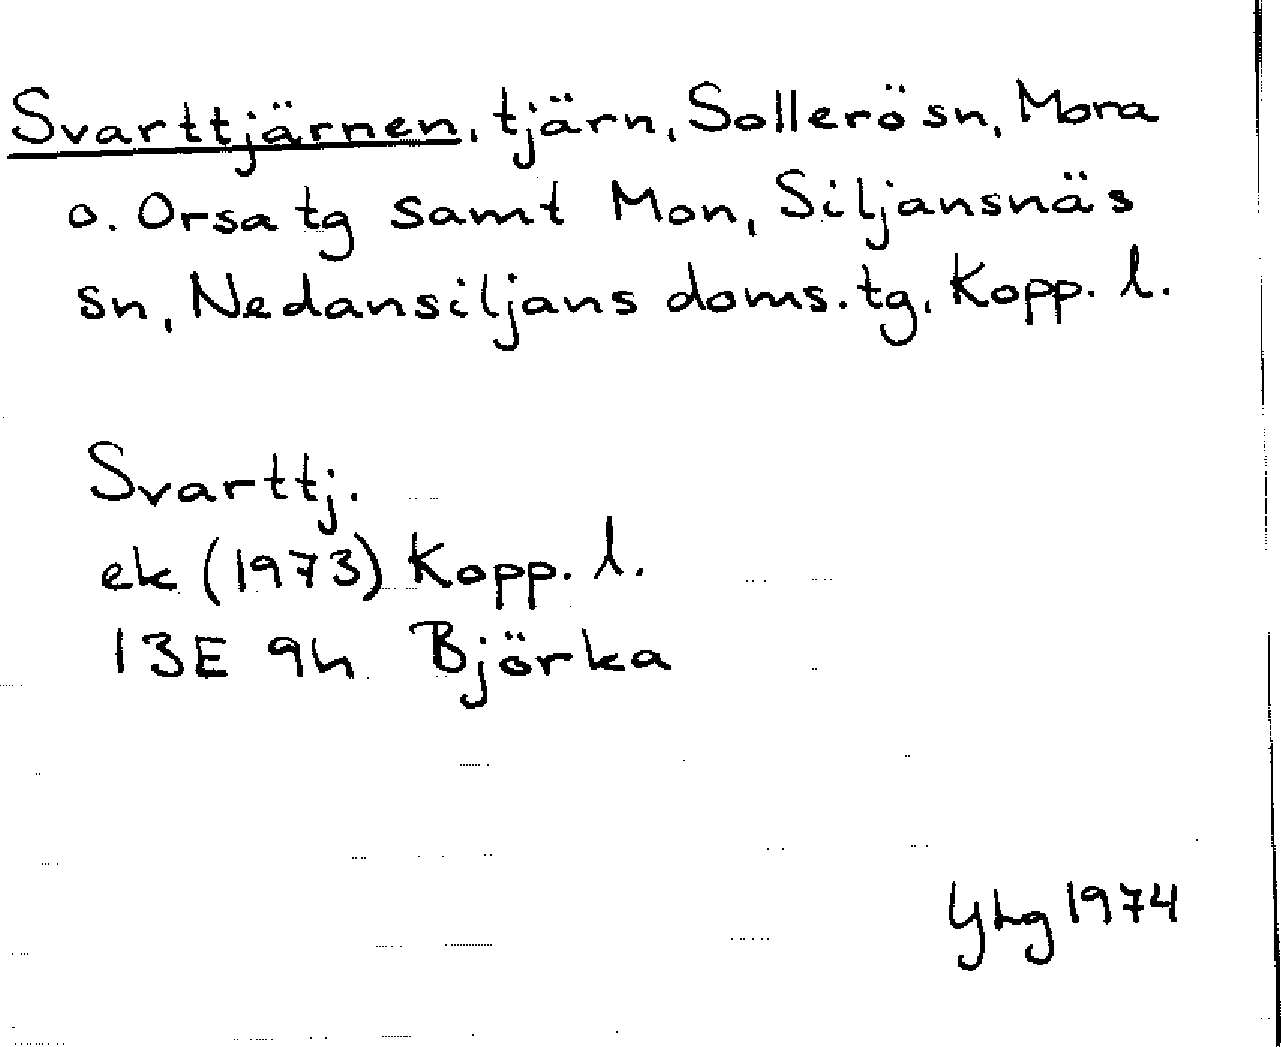 Svarttjärnen, tjärn, Sollerö sn, Mora
o. Orsa tg samt Mon, Siljansnäs
sn, Nedansiljans doms. tg, Kopp. l.
Svarttj.
ek (1973) Kopp. l.
13E 9h Björka
YHg 1974